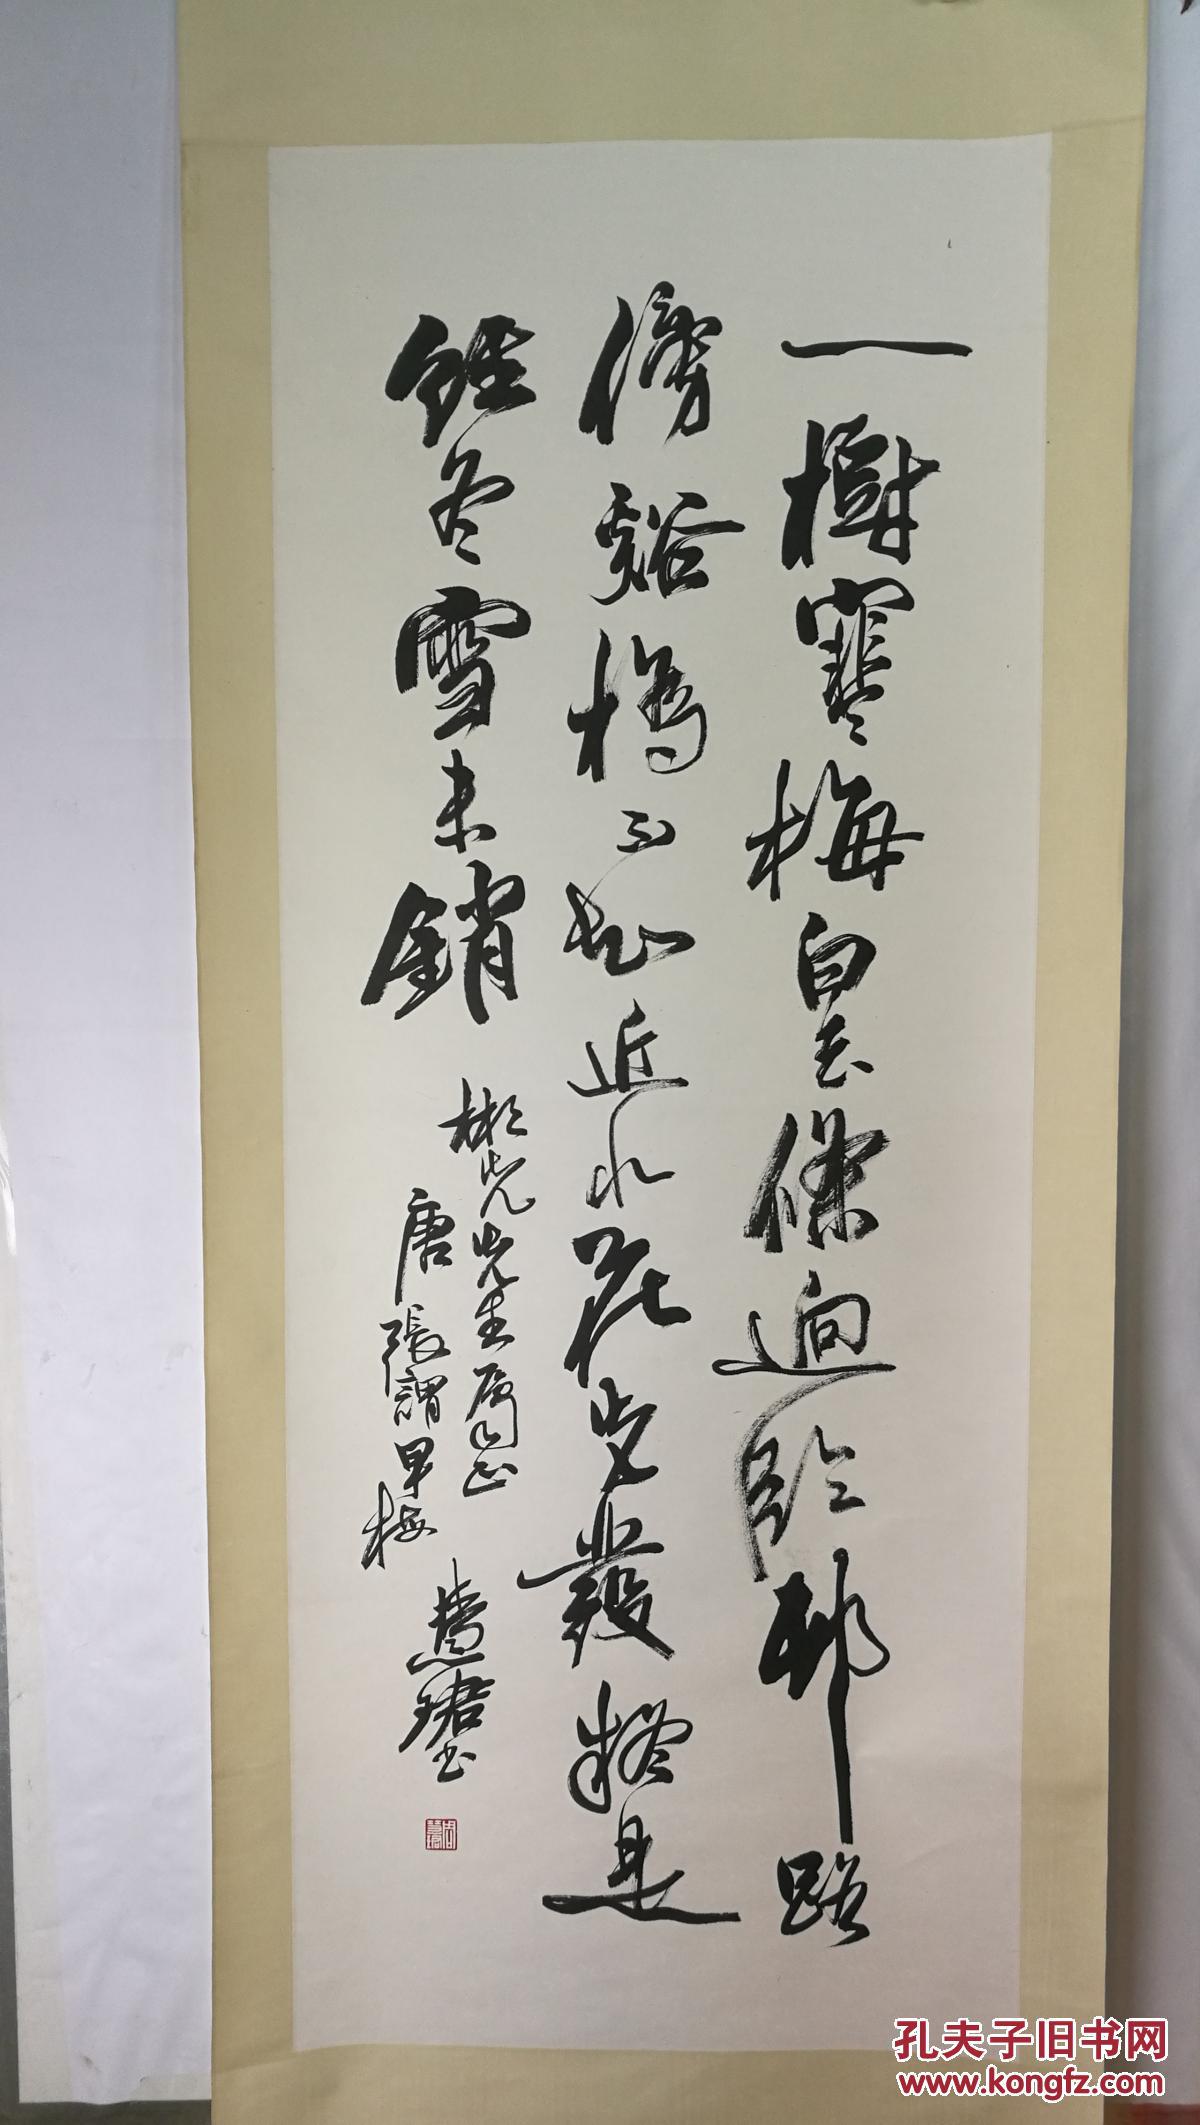 一樹寒梅白玉條迥臨邨路
傍谿橋不知近水花先發疑是
經冬雪未銷
彬先生属正
唐張謂早梅
慧珺书
周慧珺
孔夫子旧书网
www.kongfz.com